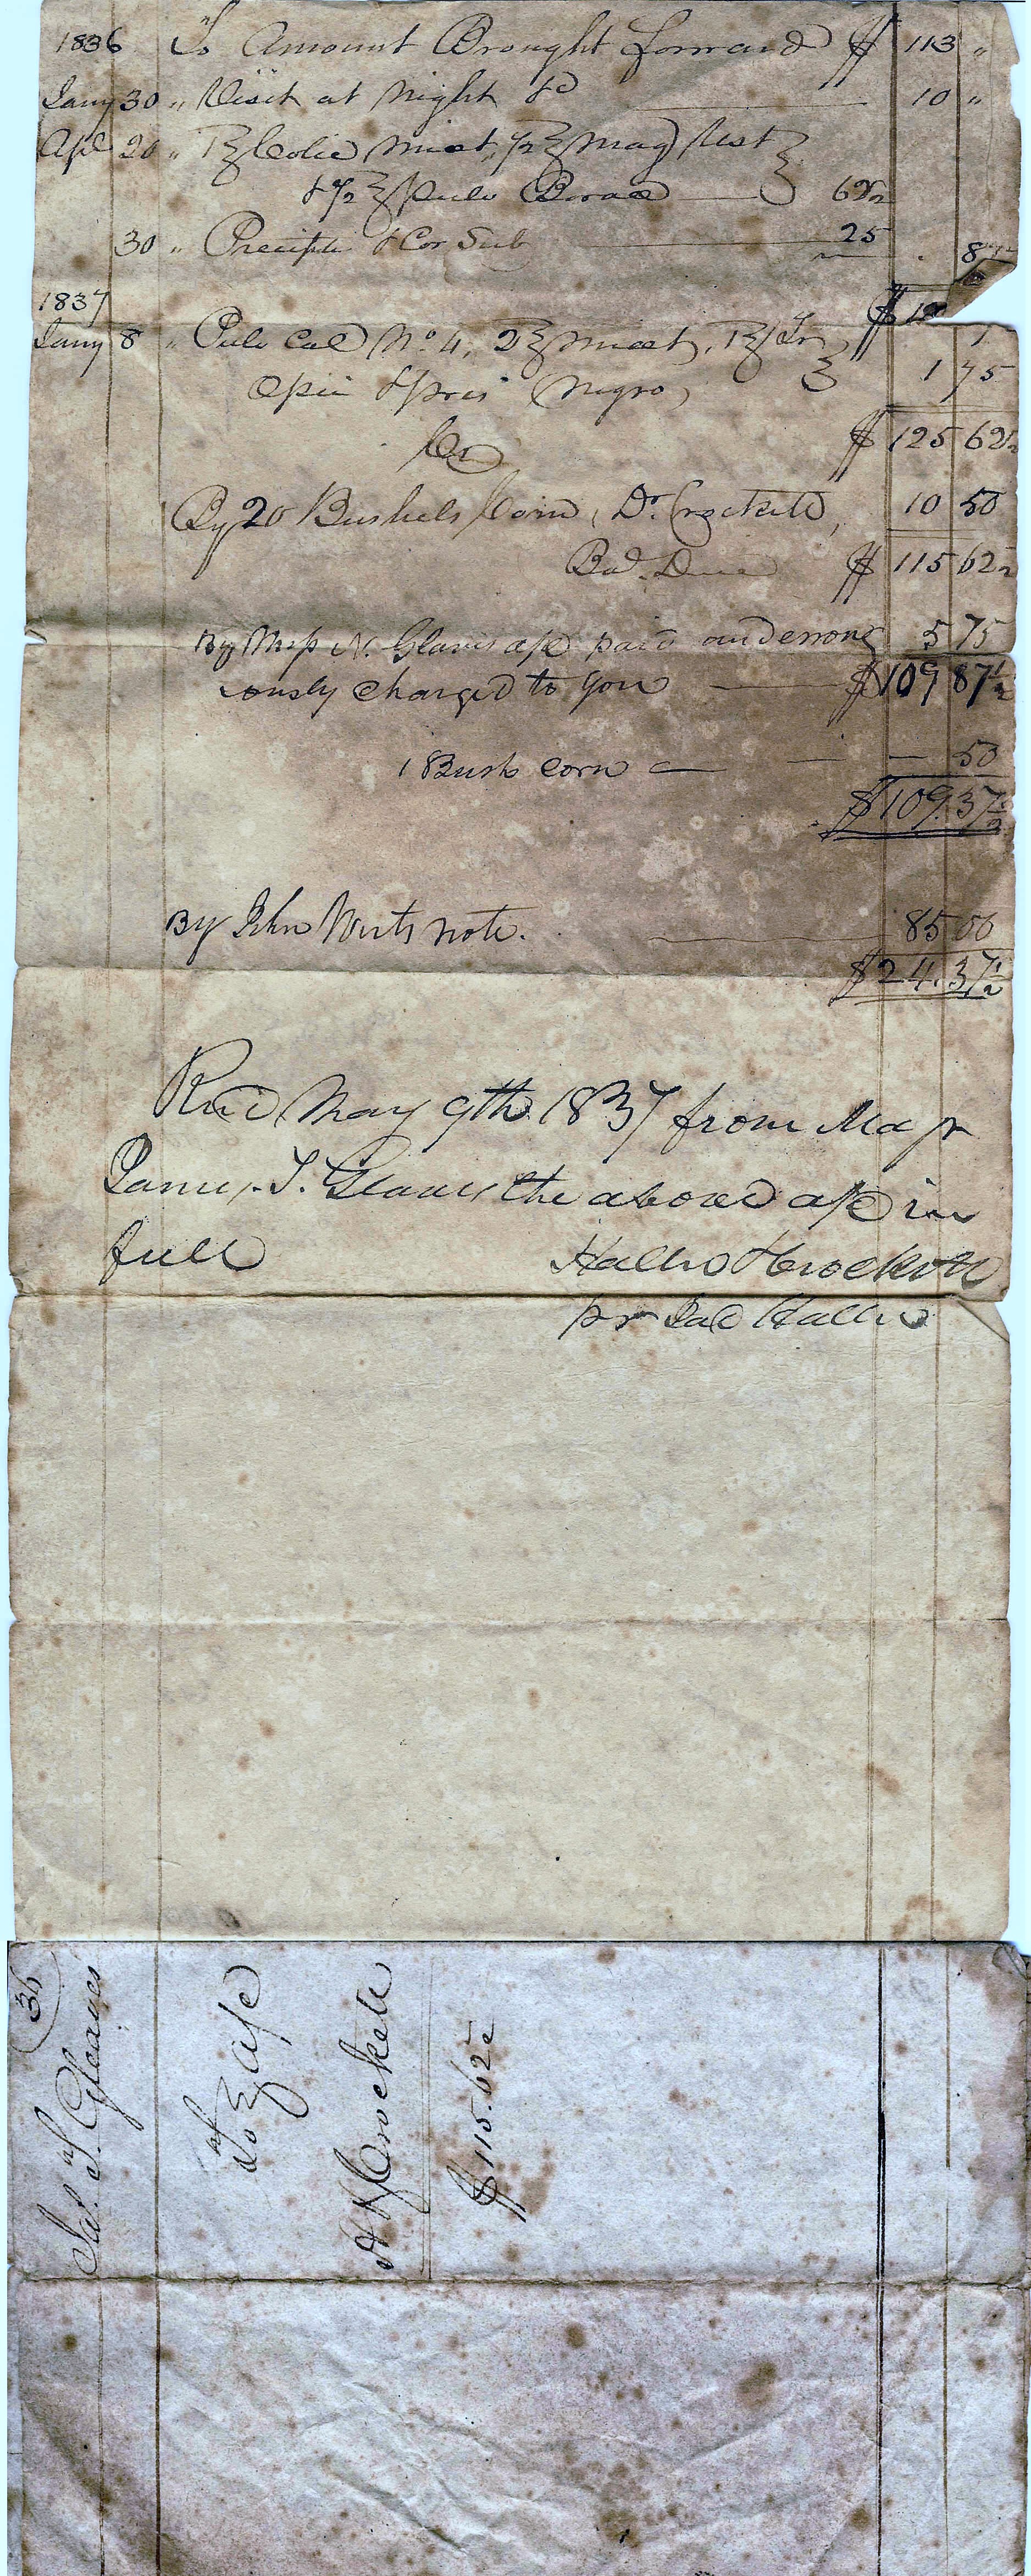 1836 To Amount Brought forward $ 113 "
Jany 30 " Visit at night &c 10 "
Apl 20 " 1℥ Colic mixt, 1/2℥ Mag Ust
& 1/2℥ Pulv Borax 62½
30 " Precipti & Cor Sub 25 . 87
1837 $ 12
Jany 8 " Pulv Cal No. 4, 2℥ mixt, 1℥ Tr
Opii & pres (Negro) 1 75
Cr $ 125 62½
By 20 Bushels Corn, Dr. Crockett, 10 50
Bal. Due $ 115 62½
By Miss N. Glaves a/c paid and errone 5 75
ously charged to you $ 109 87½
1 Bush corn — 50
$109.37½
By John Wirts note. 85 00
$24.37½
Recd May 9th 1837 from Majr
James T. Gleaves the above a/c in
full Haller & Crockett
pr Jas Haller
36
Jas. T. Gleaves
To a/c
H & Crockett
$115.62½